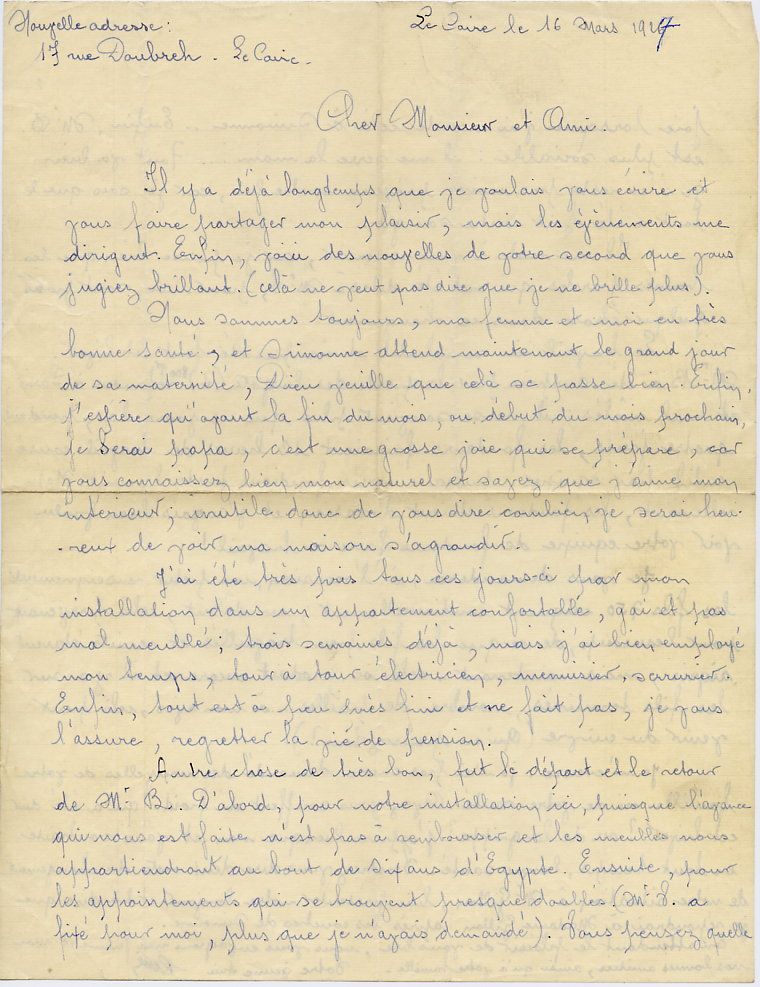 Nouvelle adresse :
17 rue Doubreh - Le Caire -
Le Caire le 16 Mars 1927
Cher Monsieur et Ami.
Il y a déjà longtemps que je voulais vous écrire et
vous faire partager mon plaisir, mais les évènements me
dirigent. Enfin, voici des nouvelles de votre second que vous
jugiez brillant. (celà ne veut pas dire que je ne brille plus).
Nous sommes toujours, ma femme et moi en très
bonne santé, et Simonne attend maintenant le grand jour
de sa maternité, Dieu veuille que celà se passe bien. Enfin,
j'espère qu'avant la fin du mois, ou début du mois prochain,
je serai papa, c'est une grosse joie qui se prépare, car
vous connaissez bien mon naturel et savez que j'aime mon
intérieur, inutile donc de vous dire combien je serai heu-
-reux de voir ma maison s'agrandir.
J'ai été très pris tous ces jours-ci par mon
installation dans un appartement confortable, gai et pas
mal meublé ; trois semaines déjà, mais j'ai bien employé
mon temps, tour à tour électricien, menuisier, serrurier.
Enfin, tout est à peu près fini et ne fait pas, je vous
l'assure, regretter la vie de pension.
Autre chose de très bon, fut le départ et le retour
de Mr B. D'abord, pour notre installation ici, puisque l'avance
qui nous est faite n'est pas à rembourser et les meubles nous
appartiendront au bout de six ans d'Egypte. Ensuite, pour
les appointements qui se trouvent presque doublés. (Mr S. a
fixé pour moi, plus que je n'avais demandé). Vous pensez quelle